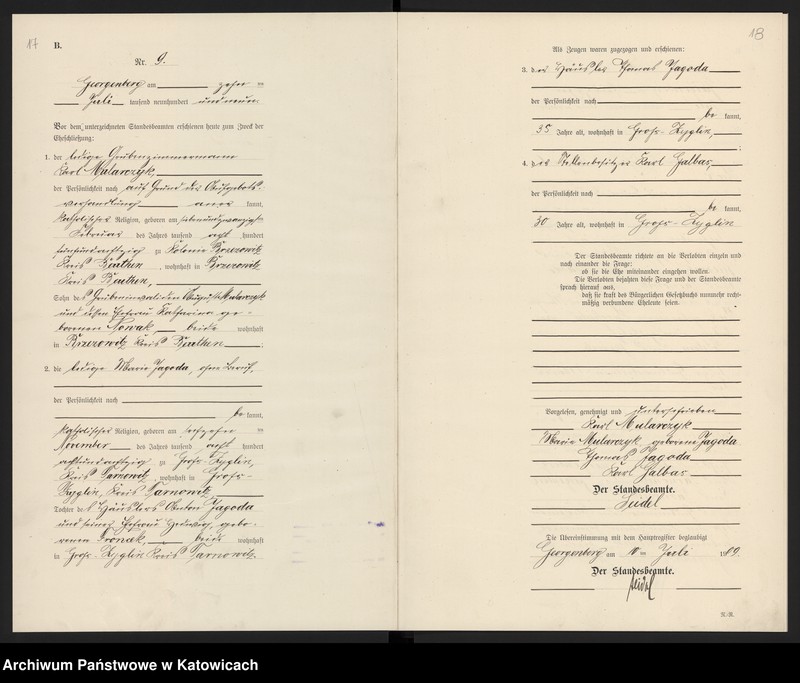 17
B.
Nr. 9.
Georgenberg am zehn ten
Juli tausend neunhundert und neun.
Vor dem unterzeichneten Standesbeamten erschienen heute zum Zweck der
Eheschließung:
1. der ledige Grubenzimmermann
Karl Mularczyk,
der Persönlichkeit nach auf Grund des Aufgebots-
verhandlung anerkannt,
katholischer Religion, geboren am siebenundzwanzigsten
Februar des Jahres tausend acht hundert
fünfundachtzig zu Kolonie Brzezowitz
Kreis Beuthen, wohnhaft in Brzezowitz,
Kreis Beuthen,
Sohn des Grubeninvaliden August Mularczyk
und dessen Ehefrau Katharina ge-
borenen Nowak, beide wohnhaft
in Brzezowitz Kreis Beuthen;
2. die ledige Marie Jagoda, ohne Beruf,
der Persönlichkeit nach
be kannt,
katholischer Religion, geboren am sechzehnten
November des Jahres tausend acht hundert
achtundachtzig zu Groß-Zyglin,
Kreis Tarnowitz, wohnhaft in Groß-
Zyglin, Kreis Tarnowitz
Tochter des Häuslers Anton Jagoda
und seiner Ehefrau Hedwig, gebo-
renen Wronak, beide wohnhaft
in Groß-Zyglin Kreis Tarnowitz.
18
Als Zeugen waren zugezogen und erschienen:
3. der Häusler Thomas Jagoda
der Persönlichkeit nach
be kannt,
35 Jahre alt, wohnhaft in Groß-Zyglin,
;
4. der Stellenbesitzer Karl Galbas,
der Persönlichkeit nach
be kannt,
30 Jahre alt, wohnhaft in Groß-Zyglin
Der Standesbeamte richtete an die Verlobten einzeln und
nach einander die Frage:
ob sie die Ehe miteinander eingehen wollen.
Die Verlobten bejahten diese Frage und der Standesbeamte
sprach hierauf aus,
daß sie kraft des Bürgerlichen Gesetzbuchs nunmehr recht-
mäßig verbundene Eheleute seien.
Vorgelesen, genehmigt und unterschrieben
Karl Mularczyk
Marie Mularczyk geborene Jagoda
Thomas Jagoda
Karl Galbas
Der Standesbeamte.
Seidel
Die Übereinstimmung mit dem Hauptregister beglaubigt
Georgenberg am 10 ten Juli 1909.
Der Standesbeamte.
Seidel
Archiwum Państwowe w Katowicach